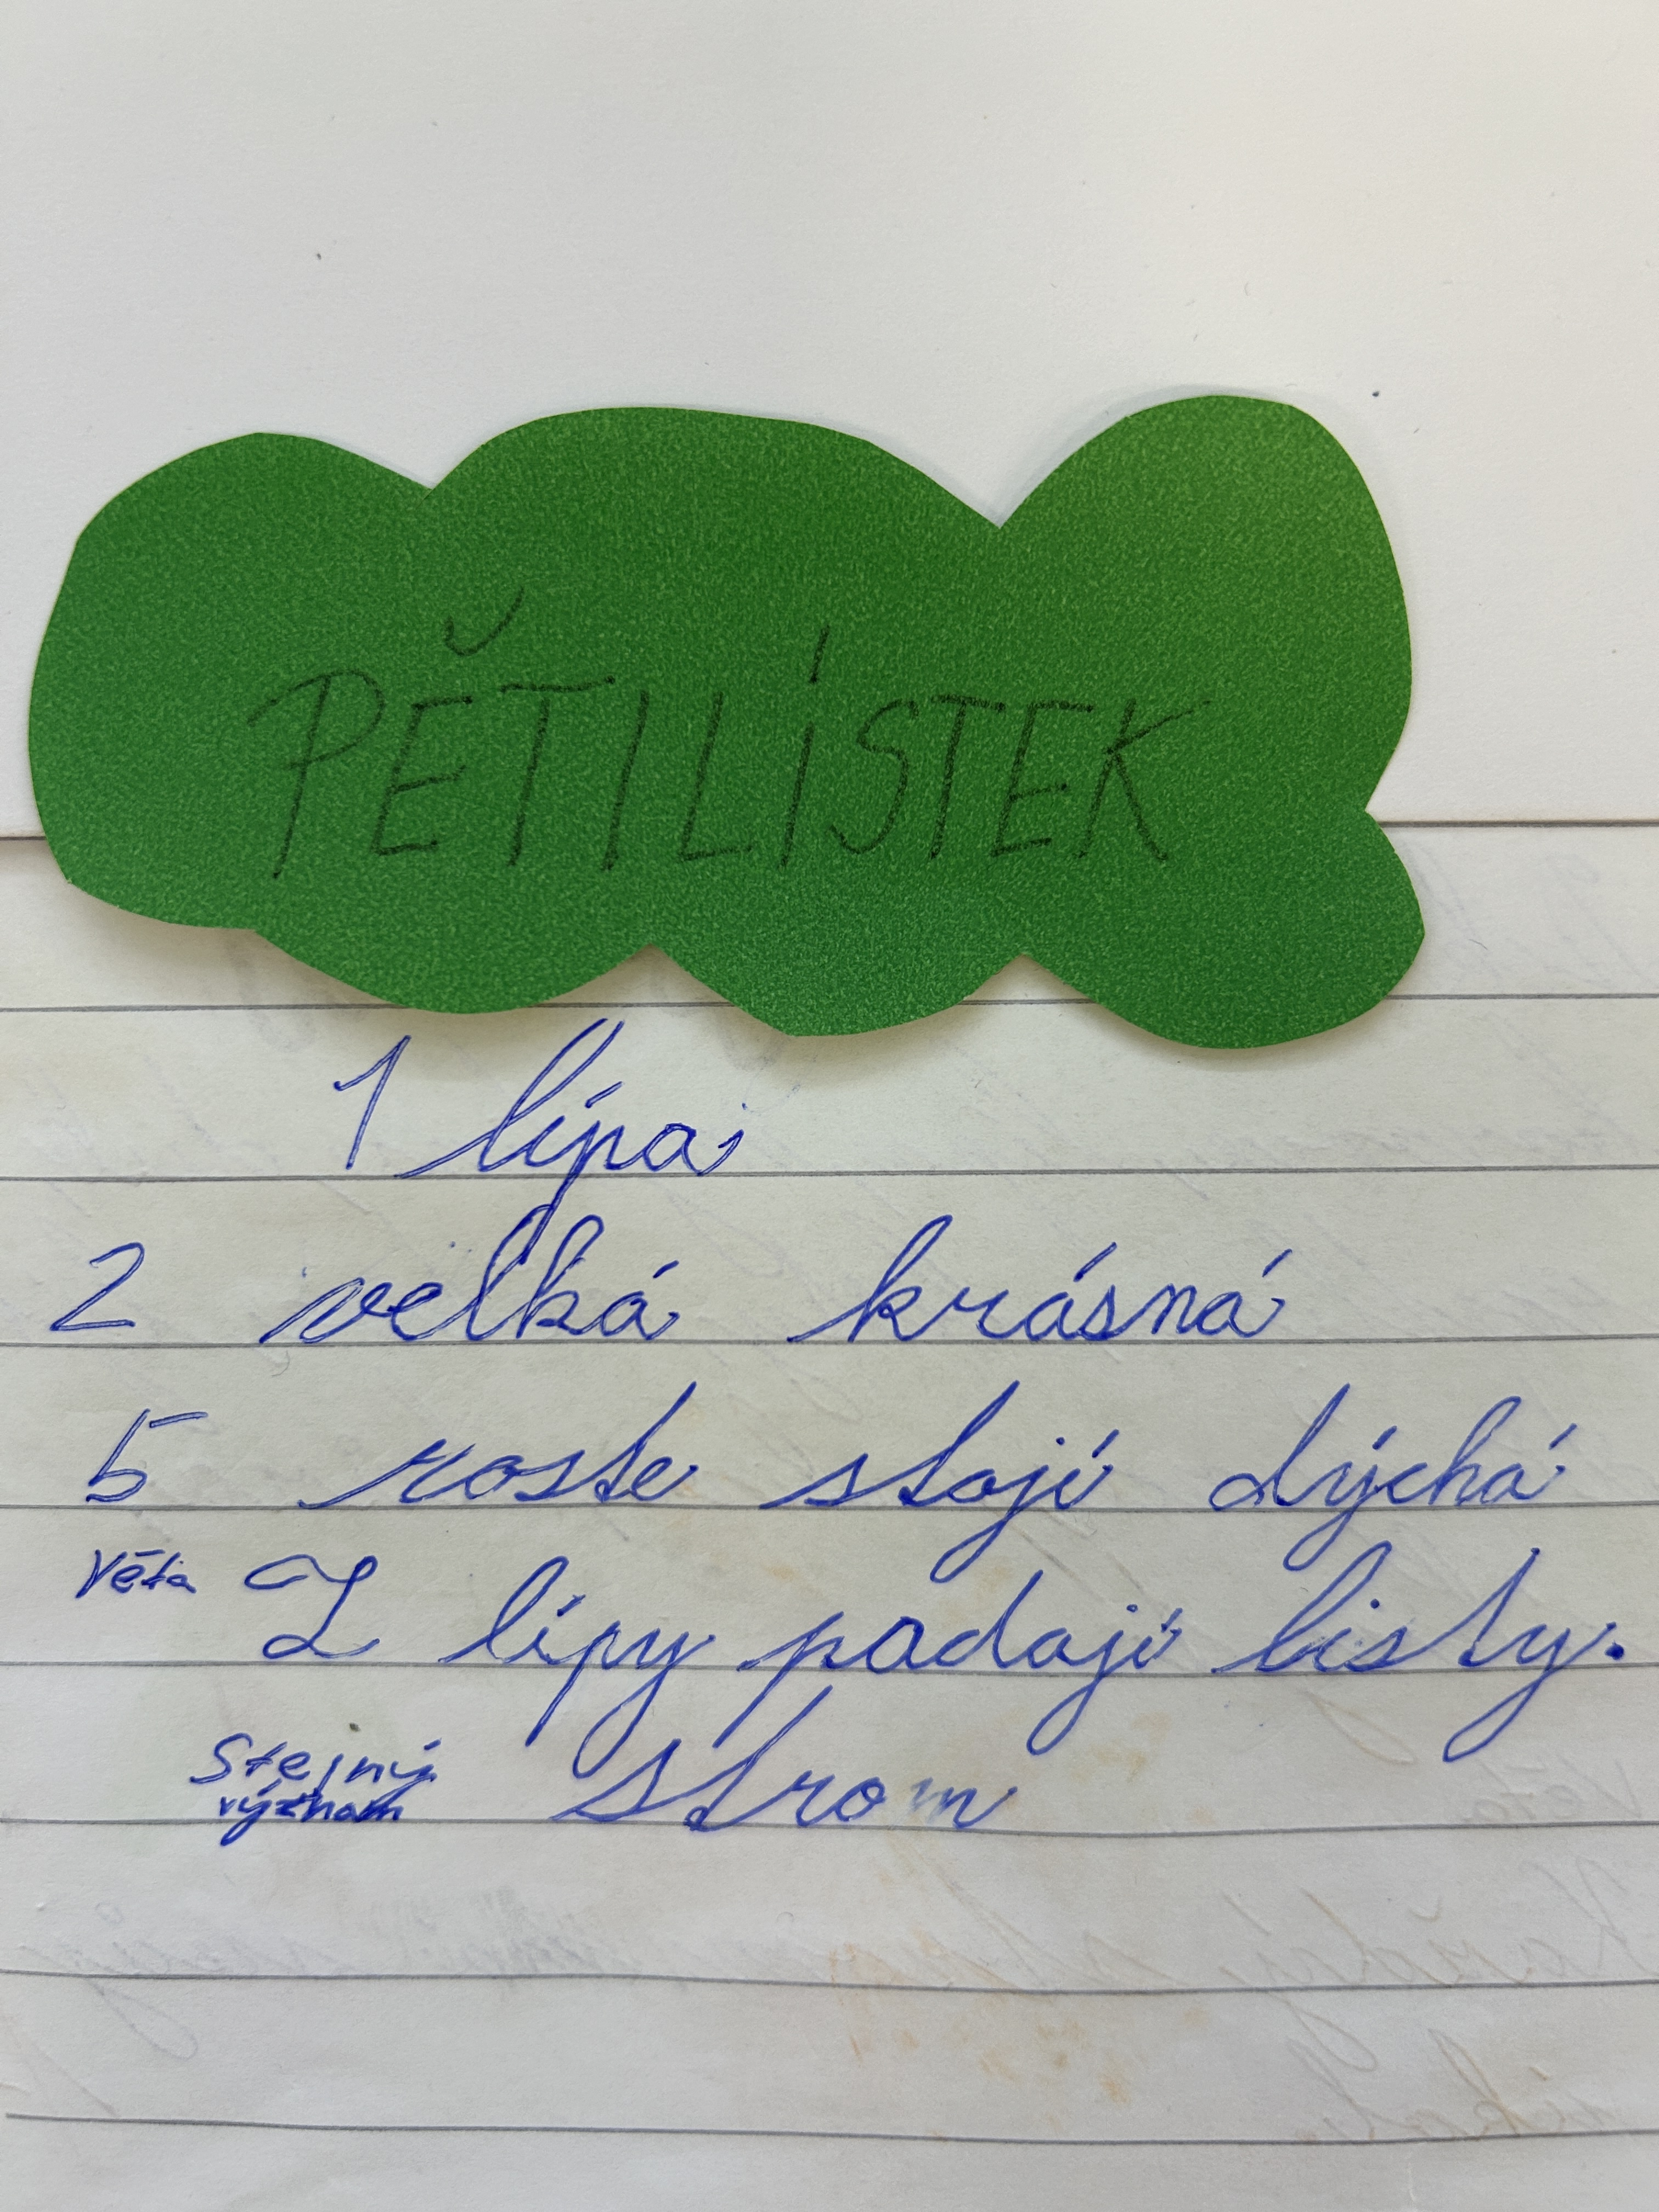 PĚTILÍSTEK
1 lípa
2 velká krásná
5 roste stojí dýchá
Věta Z lípy padají listy.
Stejný
význam strom